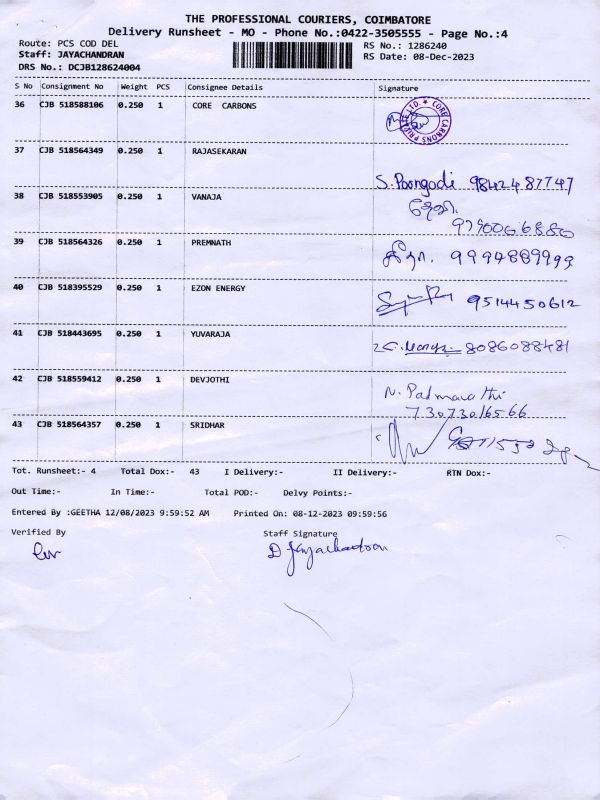 THE PROFESSIONAL COURIERS, COIMBATORE
Delivery Runsheet - MO - Phone No.:0422-3505555 - Page No.:4
Route: PCS COD DEL RS No.: 1286240
Staff: JAYACHANDRAN RS Date: 08-Dec-2023
DRS No.: DCJB128624004
S No Consignment No Weight PCS Consignee Details Signature
36 CJB 518588106 0.250 1 CORE CARBONS
CORE CARBONS PRIVATE LTD.
37 CJB 518564349 0.250 1 RAJASEKARAN
S. Poongodi 9842487747
38 CJB 518553905 0.250 1 VANAJA
9790006880
39 CJB 518564326 0.250 1 PREMNATH
9994889999
40 CJB 518395529 0.250 1 EZON ENERGY
9514450612
41 CJB 518443695 0.250 1 YUVARAJA
8086088481
42 CJB 518559412 0.250 1 DEVJOTHI
N. Padmavathi
73073016566
43 CJB 518564357 0.250 1 SRIDHAR
Tot. Runsheet:- 4 Total Dox:- 43 I Delivery:- II Delivery:- RTN Dox:-
Out Time:- In Time:- Total POD:- Delvy Points:-
Entered By :GEETHA 12/08/2023 9:59:52 AM Printed On: 08-12-2023 09:59:56
Verified By Staff Signature
D Jayachandran